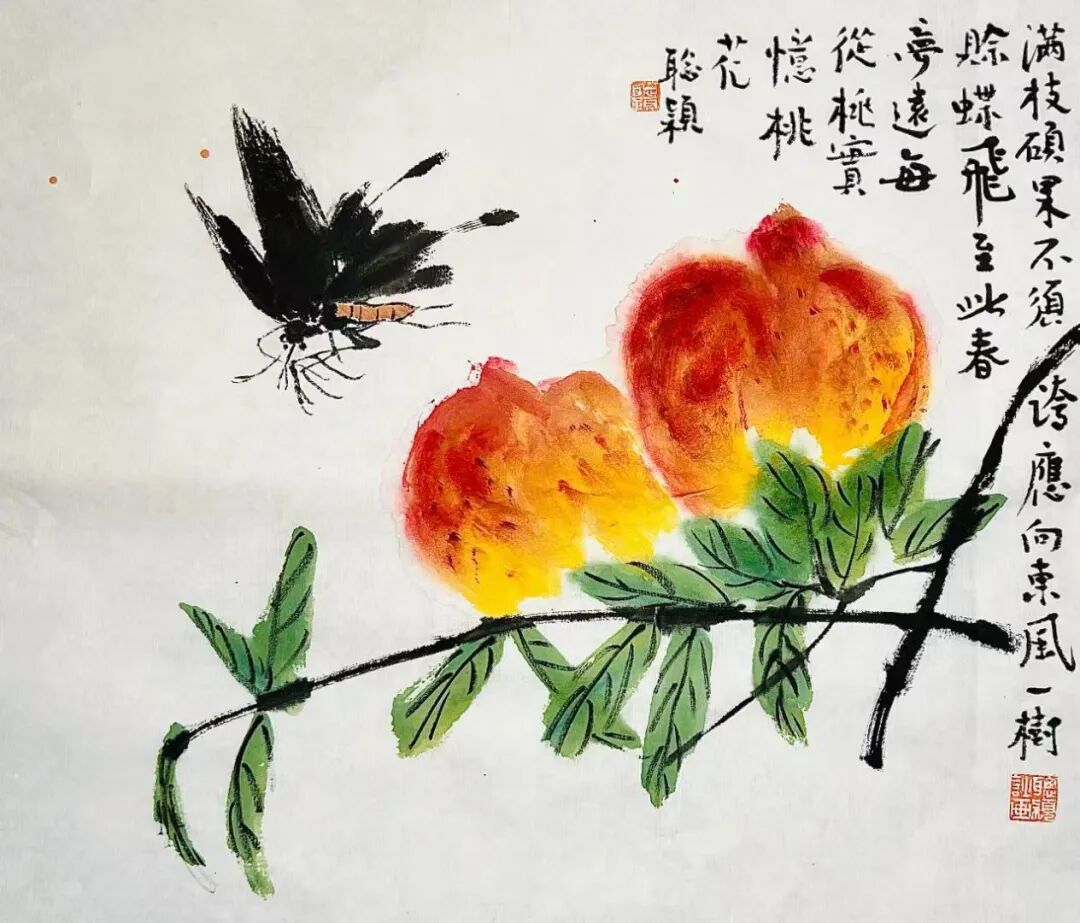 满枝碩果不須誇應向東風一樹
賒蝶飛至此春
夢遠每
從桃實
憶桃
花
聪穎